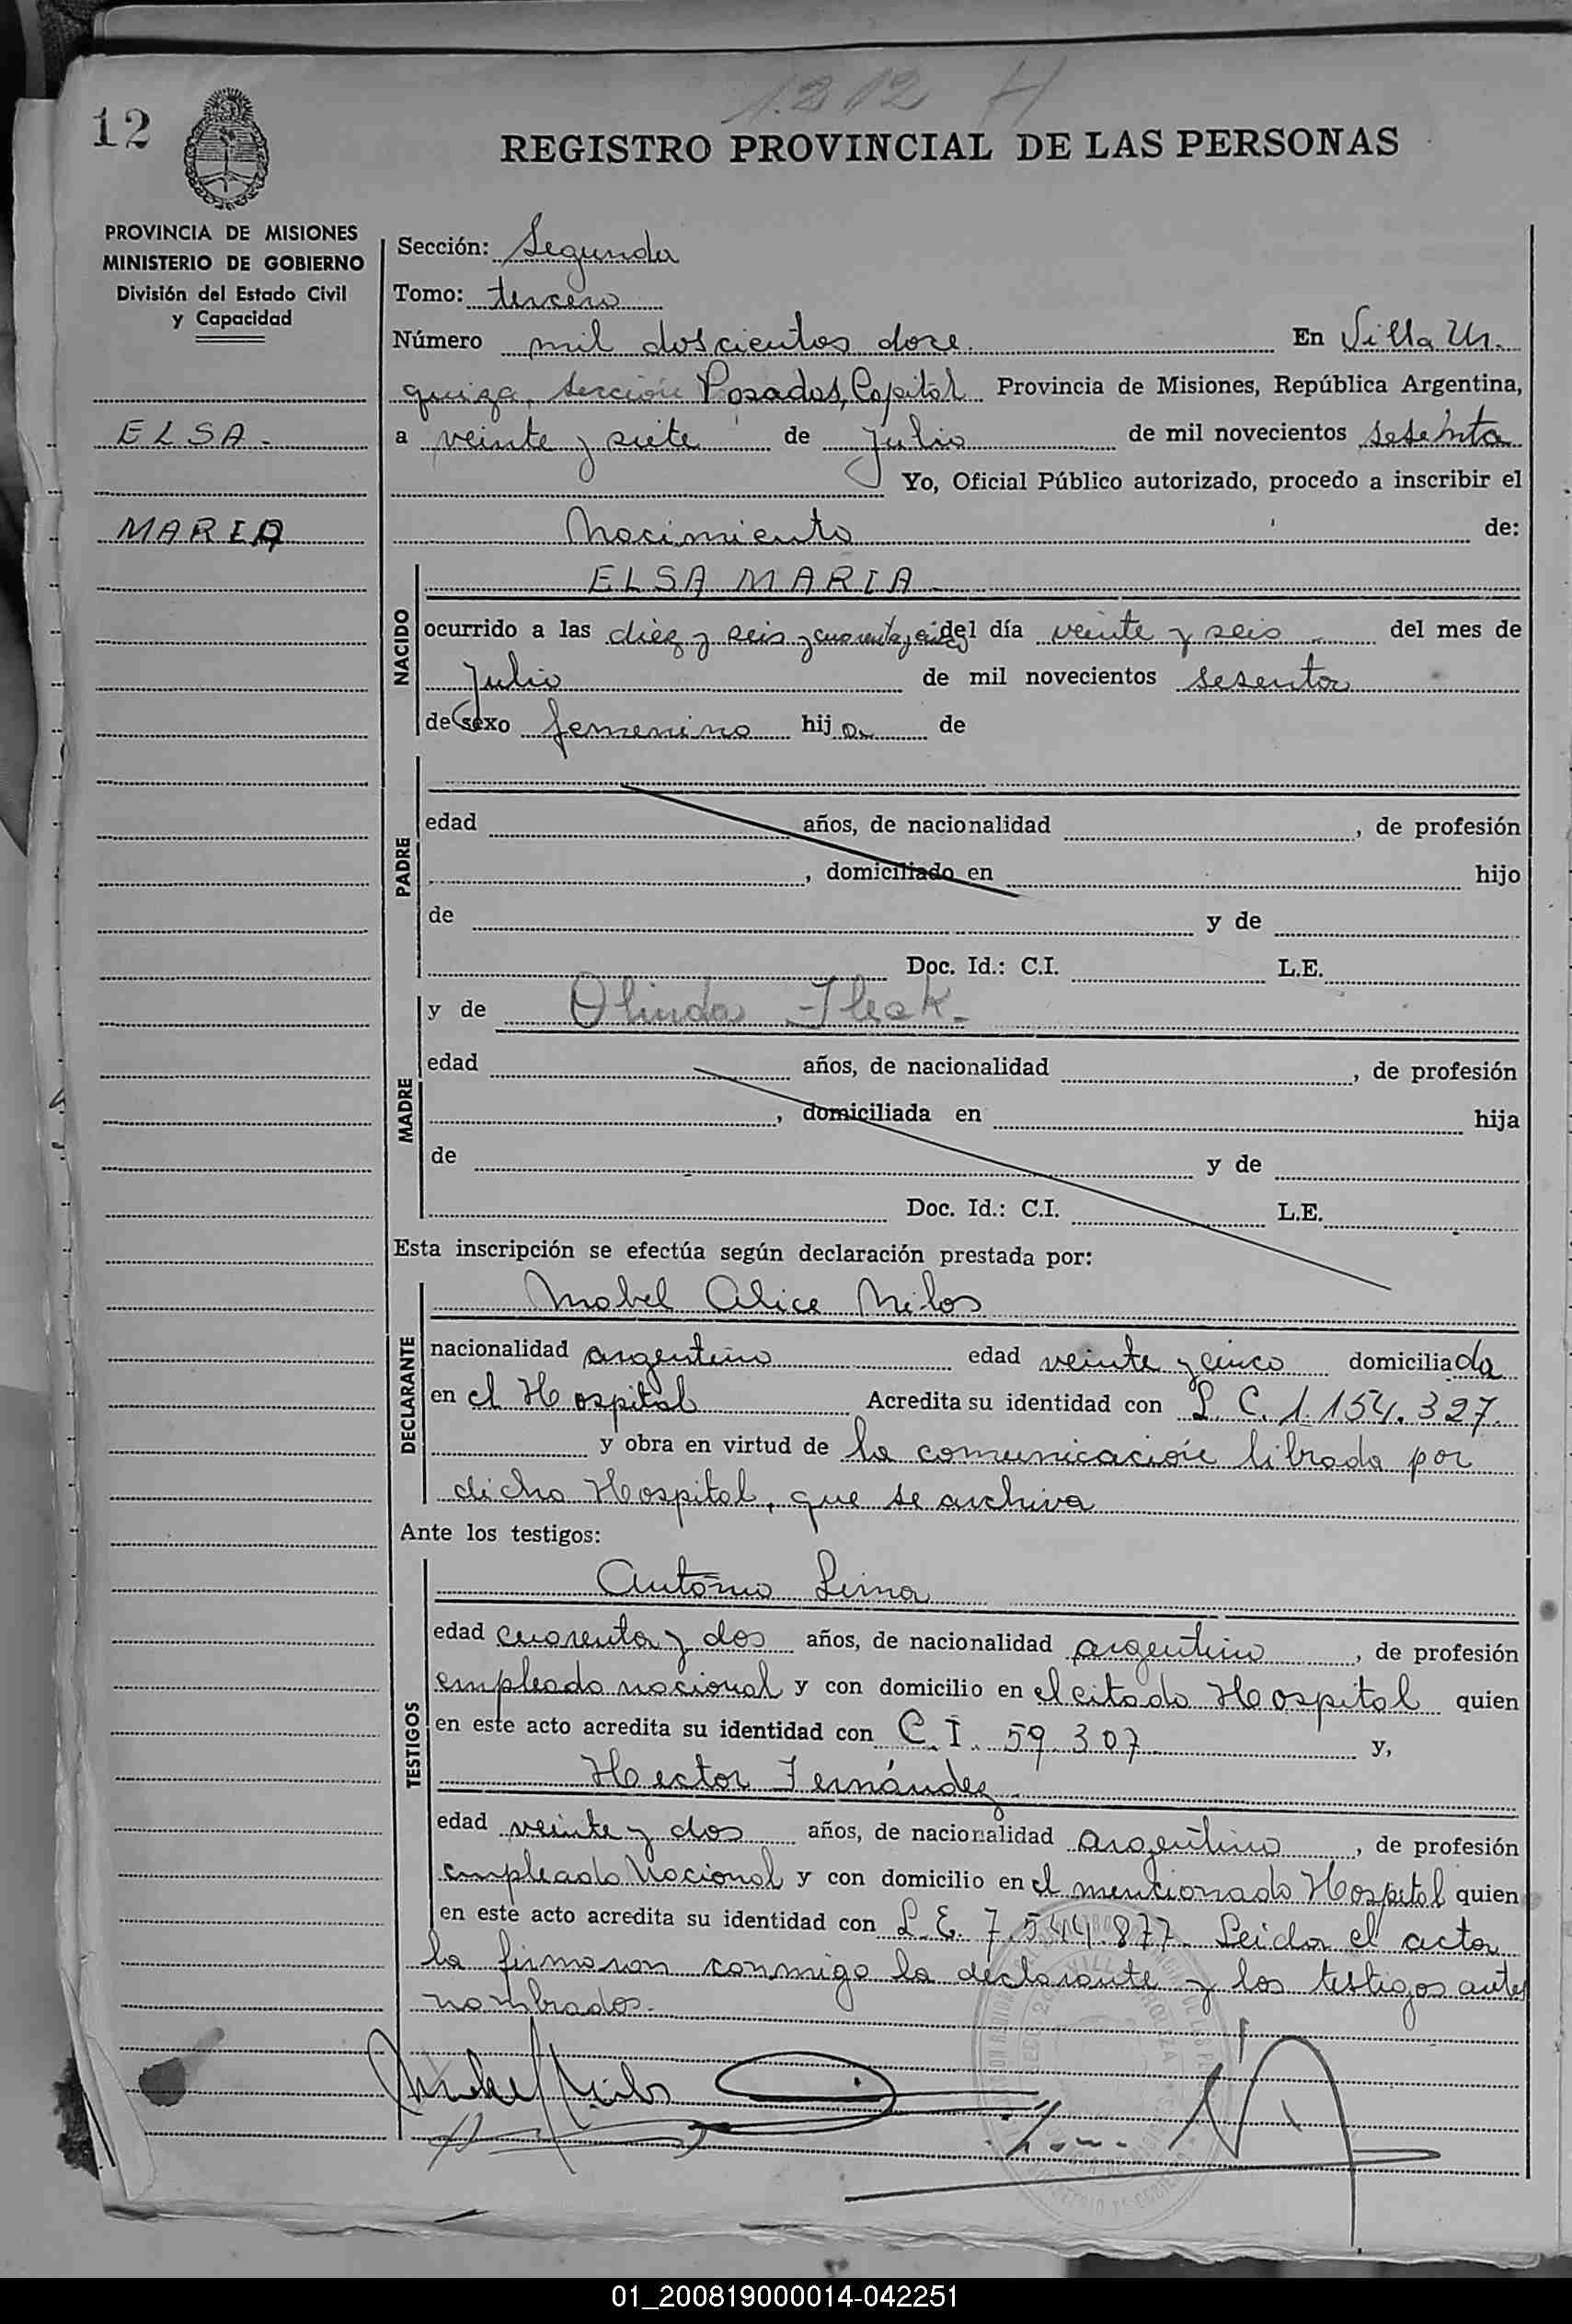 1212 H
12
REGISTRO PROVINCIAL DE LAS PERSONAS
PROVINCIA DE MISIONES
MINISTERIO DE GOBIERNO
División del Estado Civil
y Capacidad
ELSA.
MARIA
Sección: Segunda
Tomo: tercero
Número mil doscientos doce. En Villa Ur.
quiza, sección Posadas, Capital Provincia de Misiones, República Argentina,
a veinte y siete de Julio de mil novecientos sesenta
Yo, Oficial Público autorizado, procedo a inscribir el
Nacimiento de:
NACIDO
ELSA MARIA
ocurrido a las diez y seis y cuarenta y cinco del día veinte y seis del mes de
Julio de mil novecientos sesenta
de sexo femenino hija de
PADRE
edad años, de nacionalidad , de profesión
, domiciliado en hijo
de y de
Doc. Id.: C.I. L.E.
MADRE
y de Olinda
edad años, de nacionalidad , de profesión
, domiciliada en hija
de y de
Doc. Id.: C.I. L.E.
Esta inscripción se efectúa según declaración prestada por:
DECLARANTE
Mabel Alice Milos
nacionalidad argentina edad veinte y cinco domiciliada
en el Hospital Acredita su identidad con L. C. 1.154.327.
y obra en virtud de la comunicación librada por
dicho Hospital, que se archiva
Ante los testigos:
TESTIGOS
Antonio Lima
edad cuarenta y dos años, de nacionalidad argentino , de profesión
empleado nacional y con domicilio en el citado Hospital quien
en este acto acredita su identidad con C. I. 59.307 y,
Hector Fernández
edad veinte y dos años, de nacionalidad argentino , de profesión
empleado Nacional y con domicilio en el mencionado Hospital quien
en este acto acredita su identidad con L. E. 7.544.877. Leida el acta
la firmaron conmigo la declarante y los testigos antes
nombrados.
01_200819000014-042251